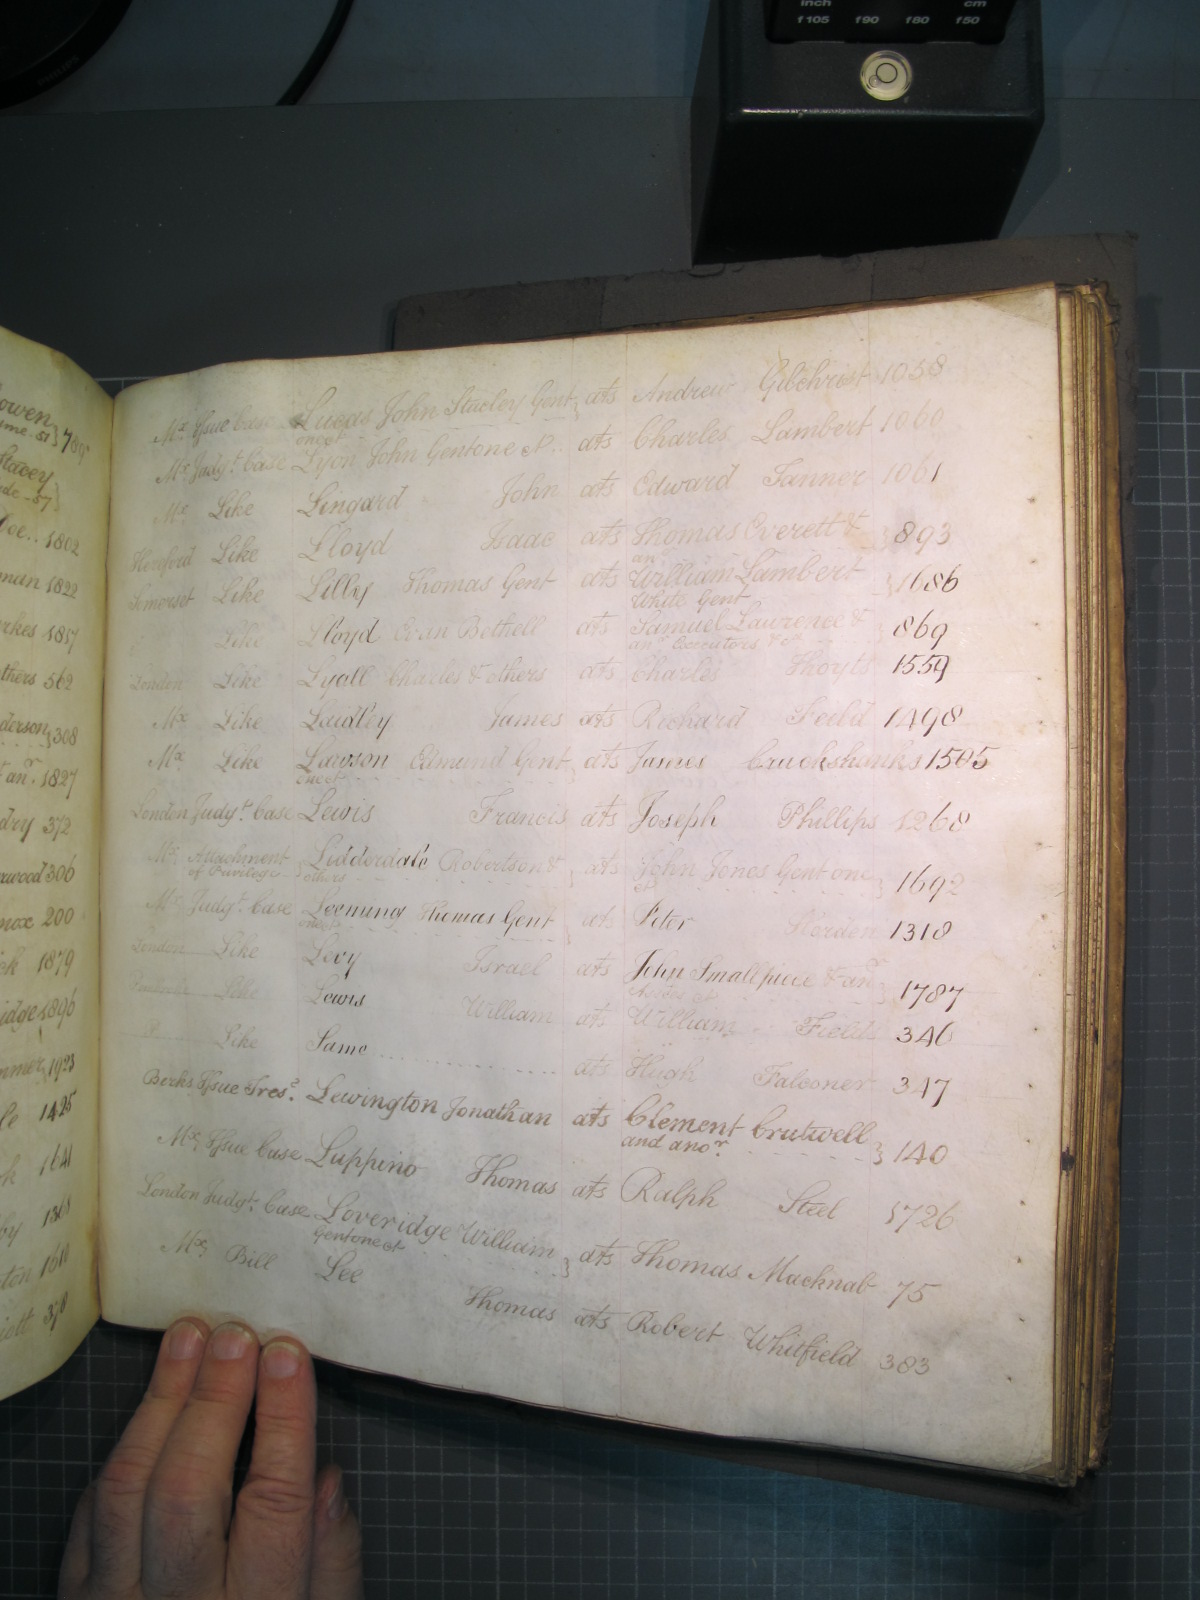 inch cm
f105 f90 f80 f50
PHILIPS
owen
ume - 51 } 789
Stacey
ude - 57 }
Doe .. 1802
man 1822
rkes 1857
thers 562
derson } 308
& anr. 1827
dry 372
xwood 306
nox 200
ck 1879
idge 1896
mmer 1923
le 1425
k 1641
by 1368
ton 1610
iott 378
Mx Issue Case Lucas John Stacley Gent } ats Andrew Gilchrist 1058
onect
Mx Judgt. Case Lyon John Gentone et .. ats Charles Lambert 1060
Mx Like Lingard John ats Edward Tanner 1061
Hereford Like Lloyd Isaac ats Thomas Everett & } 893
anr
Somerset Like Lilley Thomas Gent ats William Lambert } 1686
White Gent
Like Lloyd Evan Bethell ats Samuel Lawrence & } 869
anr Executors &c
London Like Lyall Charles & others ats Charles Hoyts 1559
Mx Like Laidley James ats Richard Feild 1498
Mx Like Lawson Edmund Gent } ats James Cruckshanks 1505
onect
London Judgt. Case Lewis Francis ats Joseph Phillips 1268
Mx Attachment Lidderdale Robertson & } ats John Jones Gent one } 1692
of Privilege others et
Mx Judgt. Case Leeming Thomas Gent } ats Peter Horden 1318
onect
London Like Levy Israel ats John Smallpiece & anr } 1787
Assees et
Like Lewis William ats William Fields 346
Like Same ats Hugh Falconer 347
Berks Issue Tres? Lewington Jonathan ats Clement Crutwell } 140
and anor.
Mx Issue Case Luppino Thomas ats Ralph Steel 1726
London Judgt. Case Loveridge William } ats Thomas Macknab 75
Gentone et
Mx Bill Lee Thomas ats Robert Whitfield 383